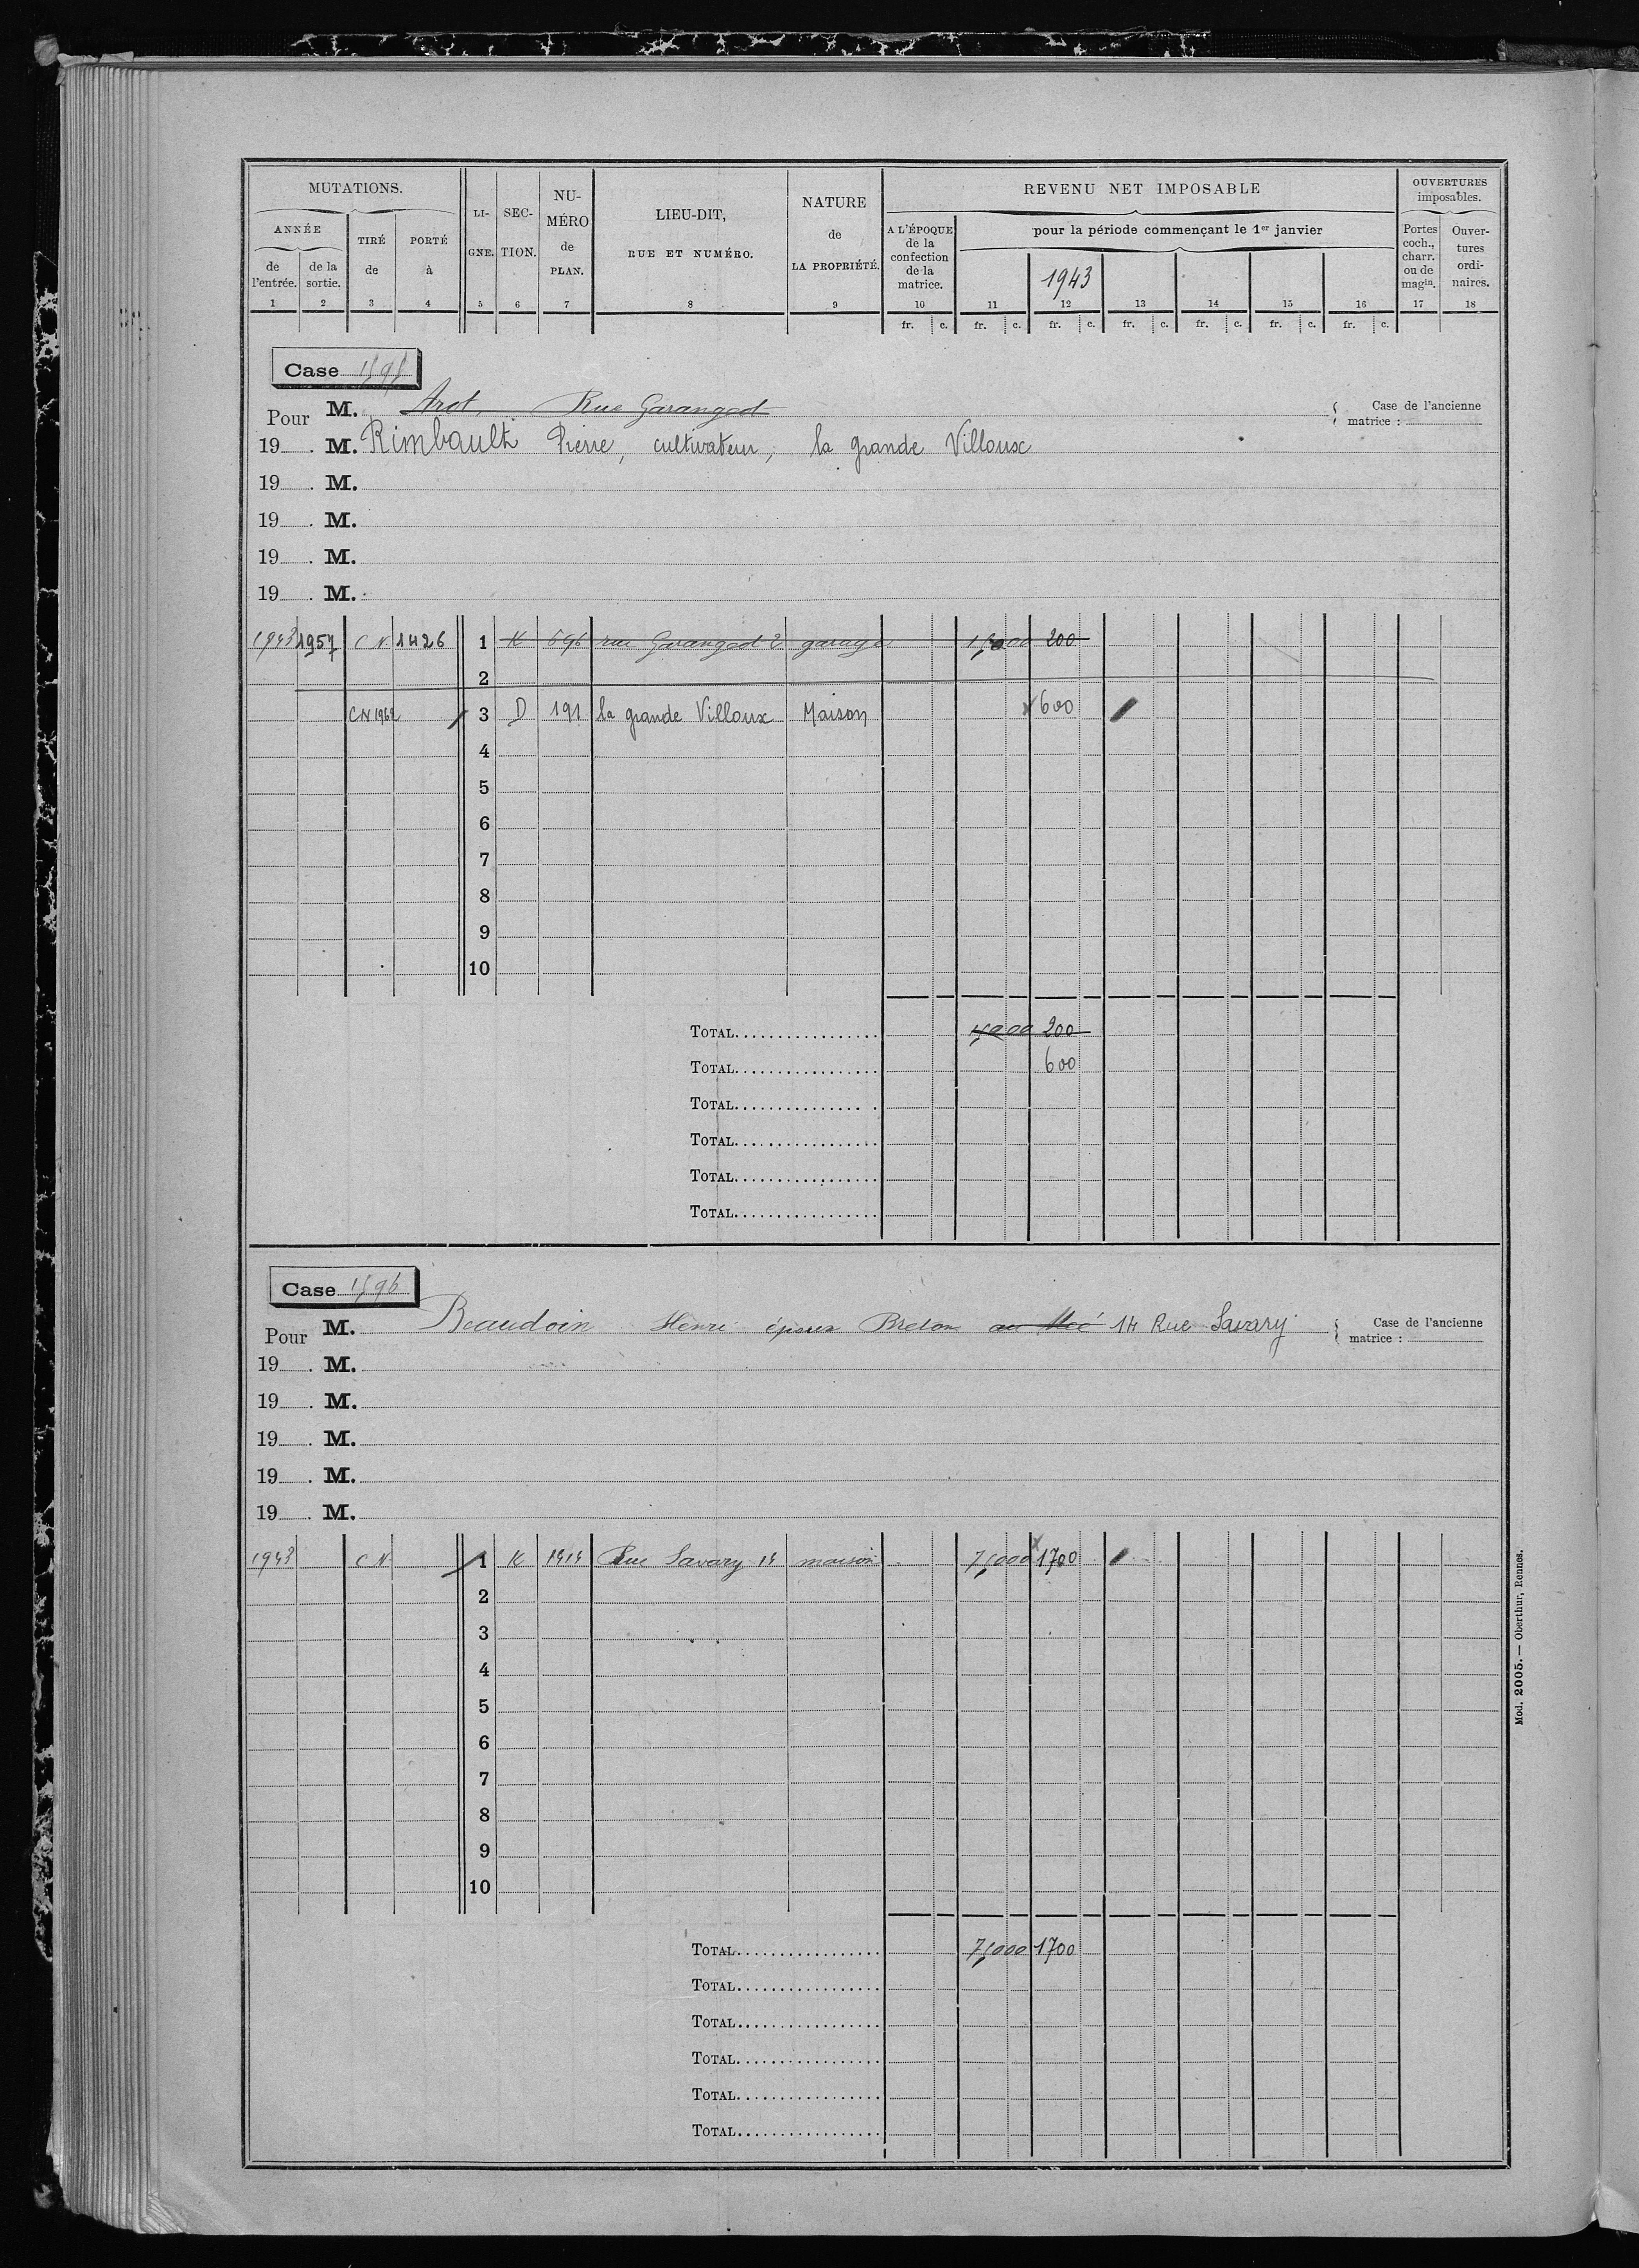 MUTATIONS.
ANNÉE
de l'entrée.
de la sortie.
TIRÉ de
PORTÉ à
LI-GNE.
SEC-TION.
NU-MÉRO de PLAN.
LIEU-DIT,
RUE ET NUMÉRO.
NATURE de LA PROPRIÉTÉ.
REVENU NET IMPOSABLE
A L'ÉPOQUE de la confection de la matrice.
pour la période commençant le 1er janvier
1943
OUVERTURES imposables.
Portes coch., charr. ou de magin.
Ouver-tures ordi-naires.
1 2 3 4 5 6 7 8 9 10 11 12 13 14 15 16 17 18
fr. c. fr. c. fr. c. fr. c. fr. c. fr. c. fr. c.
Case 1595
Pour M. Arot, Rue Garangeot
Case de l'ancienne matrice :
19 . M. Rimbault Pierre, cultivateur, la grande Villoux
19 . M.
19 . M.
19 . M.
19 . M.
1943 1957 C N 1426 1 K 696 rue Garangeot 2 garage 200
2
CN 1962 3 D 191 la grande Villoux Maison 600
4
5
6
7
8
9
10
TOTAL 200
TOTAL 600
TOTAL
TOTAL
TOTAL
TOTAL
Case 1596
Pour M. Beaudoin Henri époux Breton 14 Rue Savary
Case de l'ancienne matrice :
19 . M.
19 . M.
19 . M.
19 . M.
19 . M.
1943 C N 1 K 1414 Rue Savary 14 maison 75000 1700
2
3
4
5
6
7
8
9
10
TOTAL 75000 1700
TOTAL
TOTAL
TOTAL
TOTAL
TOTAL
Mod. 2005. — Oberthur, Rennes.